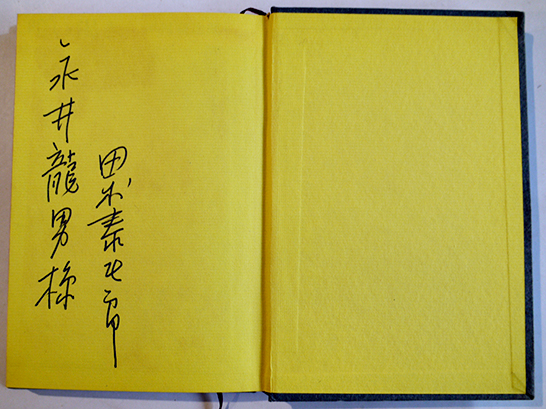 永井龍男様
田村泰次郎